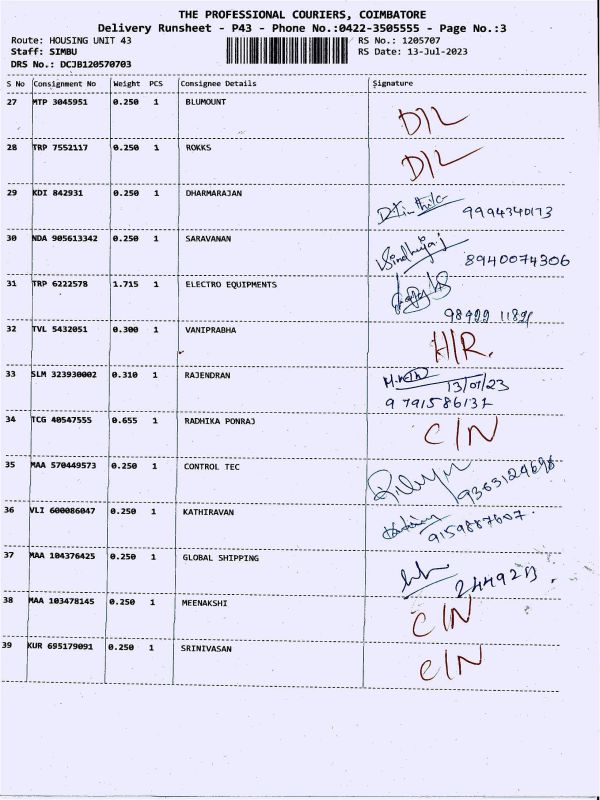 THE PROFESSIONAL COURIERS, COIMBATORE
Delivery Runsheet - P43 - Phone No.:0422-3505555 - Page No.:3
Route: HOUSING UNIT 43 RS No.: 1205707
Staff: SIMBU RS Date: 13-Jul-2023
DRS No.: DCJB120570703
S No Consignment No Weight PCS Consignee Details Signature
27 MTP 3045951 0.250 1 BLUMOUNT
D/L
28 TRP 7552117 0.250 1 ROKKS
D/L
29 KDI 842931 0.250 1 DHARMARAJAN
9994340173
30 NDA 905613342 0.250 1 SARAVANAN
Sindhuja.j 8940074306
31 TRP 6222578 1.715 1 ELECTRO EQUIPMENTS
32 TVL 5432051 0.300 1 VANIPRABHA
H/R.
33 SLM 323930002 0.310 1 RAJENDRAN
13/07/23
9791586137
34 TCG 40547555 0.655 1 RADHIKA PONRAJ
C/N
35 MAA 570449573 0.250 1 CONTROL TEC
9363124698
36 VLI 600086047 0.250 1 KATHIRAVAN
9159887607.
37 MAA 104376425 0.250 1 GLOBAL SHIPPING
38 MAA 103478145 0.250 1 MEENAKSHI
C/N
39 KUR 695179091 0.250 1 SRINIVASAN
C/N